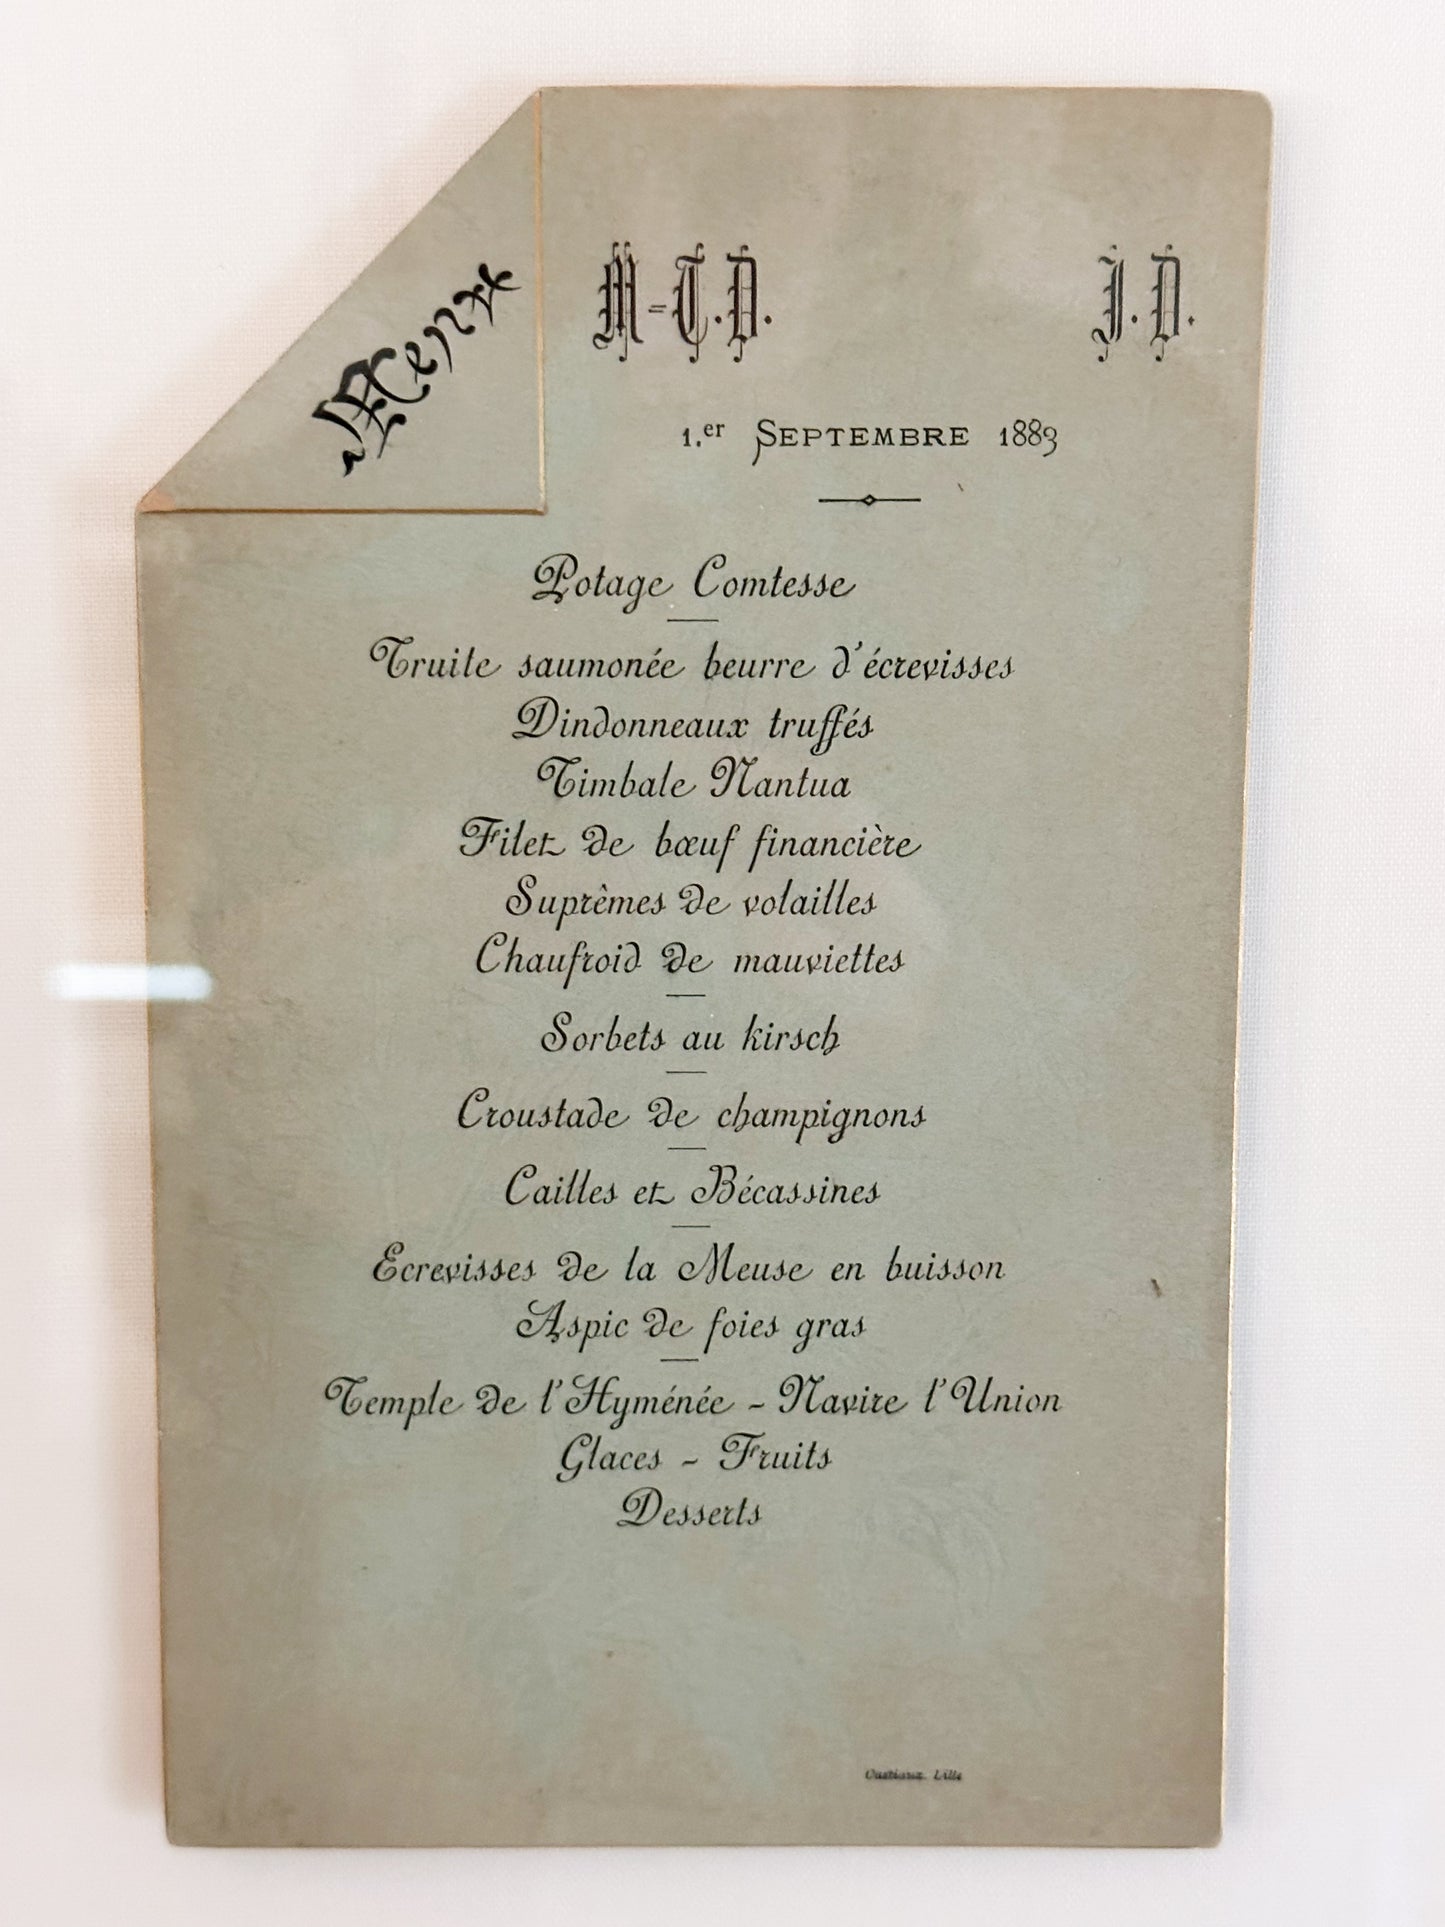 Menu
M-T.D. J.D.
1.er SEPTEMBRE 1883
Potage Comtesse
Truite saumonée beurre d'écrevisses
Dindonneaux truffés
Timbale Nantua
Filet de bœuf financière
Suprêmes de volailles
Chaufroid de mauviettes
Sorbets au kirsch
Croustade de champignons
Cailles et Bécassines
Ecrevisses de la Meuse en buisson
Aspic de foies gras
Temple de l'Hyménée - Navire l'Union
Glaces - Fruits
Desserts
Lille